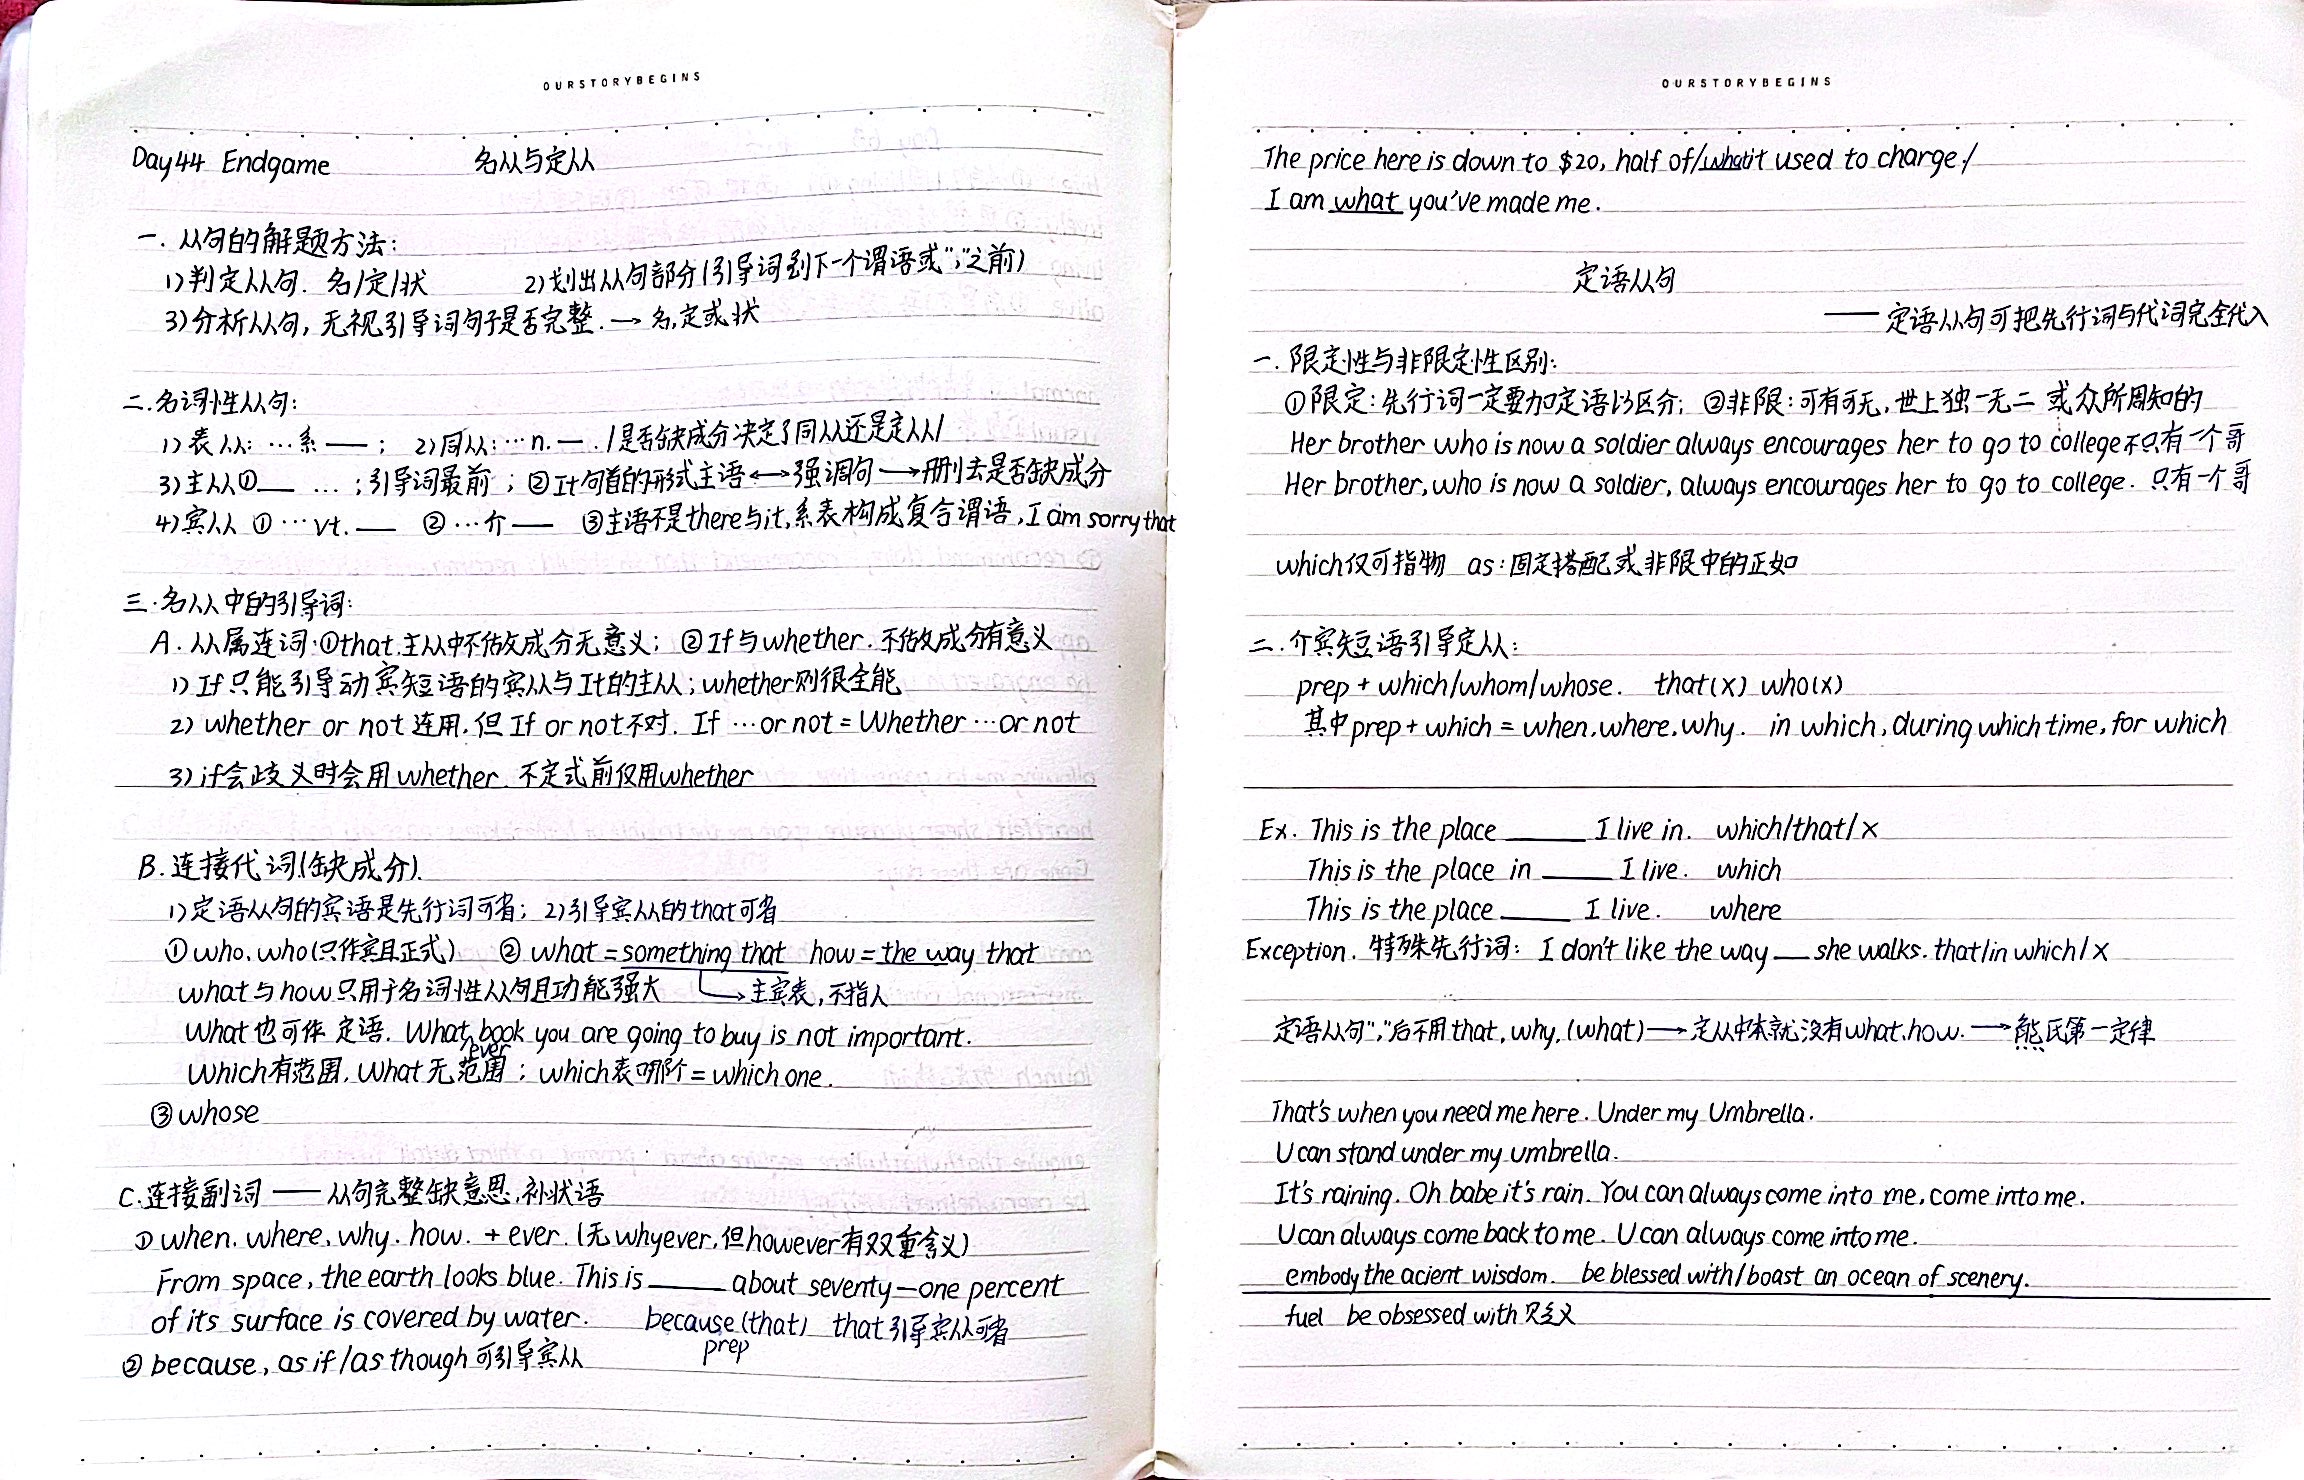 OURSTORYBEGINS
Day44 Endgame 名从与定从
一. 从句的解题方法:
1)判定从句. 名/定/状 2)划出从句部分(引导词到下一个谓语或","之前)
3)分析从句, 无视引导词句子是否完整. → 名,定或状
二.名词性从句:
1)表从: …系 —— ; 2)同从: …n. — . /是否缺成分决定了同从还是定从/
3)主从①—— … ;引导词最前 ; ②It句首的形式主语⟷强调句⟶删去是否缺成分
4)宾从 ①…vt. —— ②…介—— ③主语不是there与it,系表构成复合谓语, I am sorry that
三.名从中的引导词:
A. 从属连词·①that.主从中不做成分无意义; ②If与whether.不做成分有意义
1) If只能引导动宾短语的宾从与It的主从; whether则很全能
2) whether or not 连用.但 If or not 不对. If …or not = Whether …or not
3) if会歧义时会用whether. 不定式前仅用whether
B.连接代词(缺成分).
1)定语从句的宾语是先行词可省; 2)引导宾从的that可省
①who. who(只作宾且正式) ② what = something that how = the way that
what与how只用于名词性从句且功能强大 → 主宾表,不指人
What也可作 定语. What book you are going to buy is not important.
ever
Which有范围. What无范围; which表哪个 = which one.
③whose
C.连接副词 —— 从句完整缺意思,补状语
① when. where. why. how. + ever. (无whyever, 但however有双重含义)
From space, the earth looks blue. This is ____ about seventy-one percent
of its surface is covered by water. because (that) that引导宾从可省
prep
② because, as if /as though 可引导宾从
OURSTORYBEGINS
The price here is down to $20, half of/what it used to charge./
I am what you've made me.
定语从句
—— 定语从句可把先行词与代词完全代入
一. 限定性与非限定性区别:
①限定: 先行词一定要加定语以区分; ②非限: 可有可无, 世上独一无二 或众所周知的
Her brother who is now a soldier always encourages her to go to college不只有一个哥
Her brother, who is now a soldier, always encourages her to go to college. 只有一个哥
which仅可指物 as: 固定搭配或非限中的正如
二. 介宾短语引导定从:
prep + which/whom/whose. that(x) who(x)
其中prep + which = when. where. why. in which, during which time, for which
Ex. This is the place ____ I live in. which/that/x
This is the place in ____ I live. which
This is the place ____ I live. where
Exception. 特殊先行词: I don't like the way __ she walks. that/in which/x
定语从句","后不用that, why. (what) → 定从中本就没有what.how. → 熊氏第一定律
That's when you need me here. Under my Umbrella.
U can stand under my umbrella.
It's raining. Oh babe it's rain. You can always come into me, come into me.
U can always come back to me. U can always come into me.
embody the acient wisdom. be blessed with/boast an ocean of scenery.
fuel be obsessed with 贬义